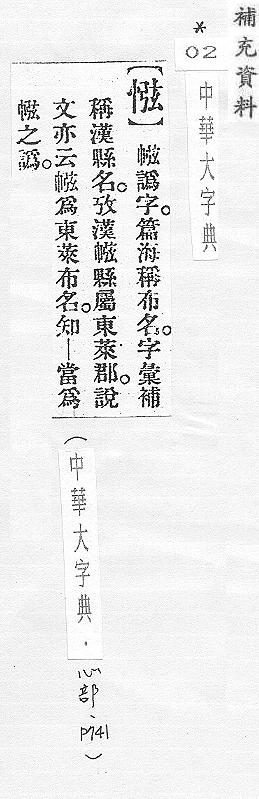 補充資料
*
02
中華大字典
【】 㡉譌字。篇海稱布名。字彙補
稱漢縣名。攷漢㡉縣屬東萊郡。說
文亦云㡉爲東萊布名。知｜當爲
㡉之譌。
(中華大字典．心部、P741)